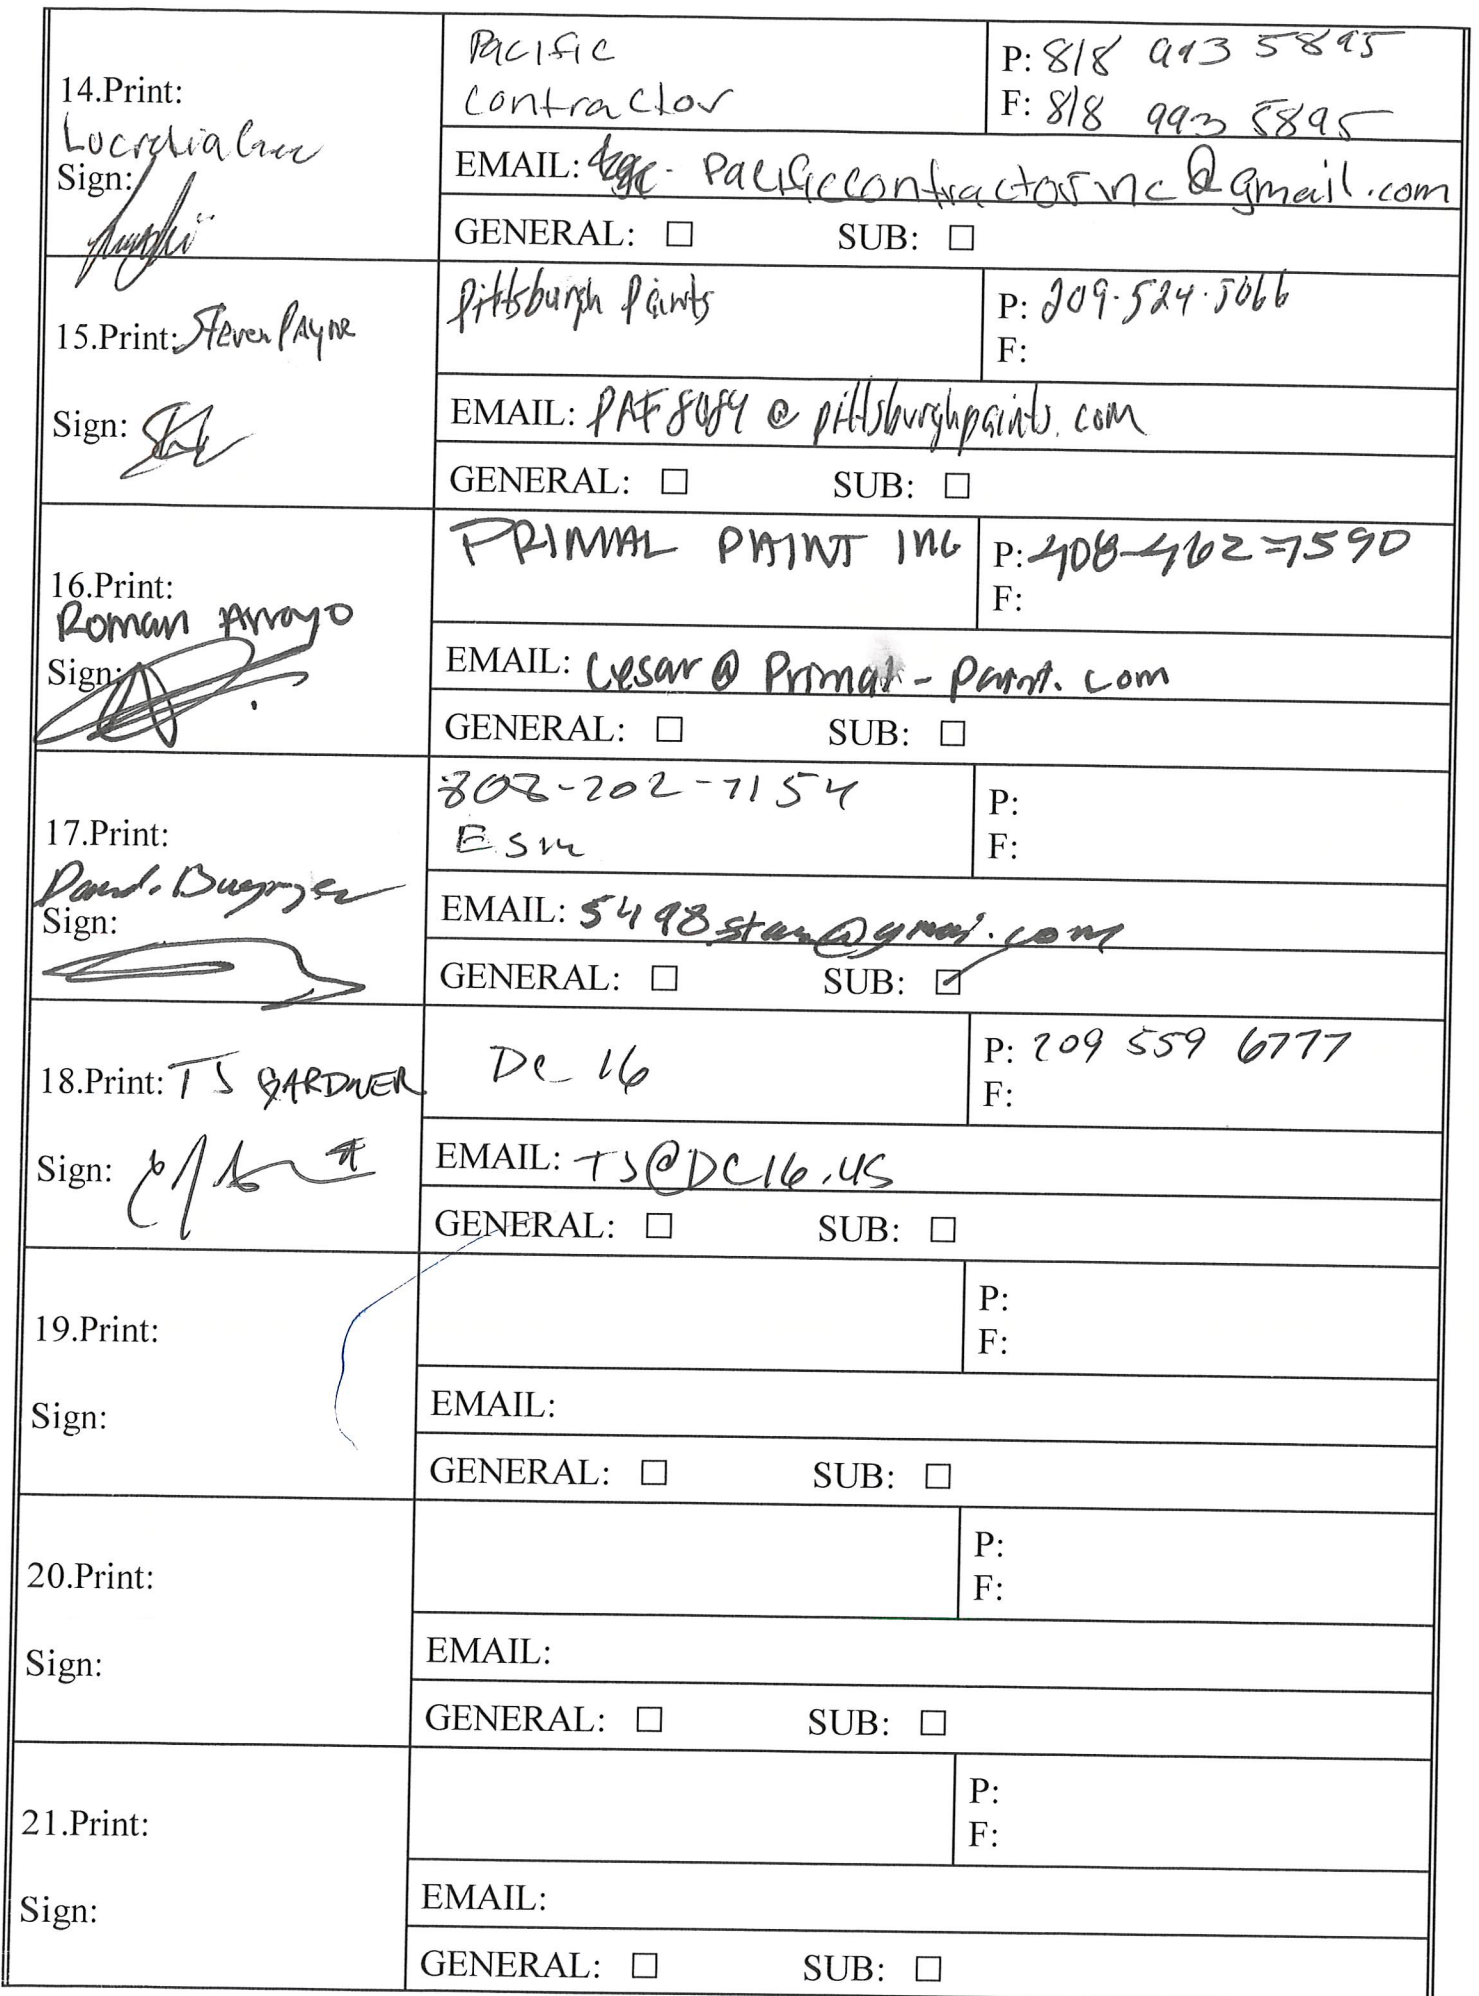 14.Print:
Sign:
Pacific
Contractor
P: 818 993 5895
F: 818 993 5895
EMAIL: pacificcontractorinc@gmail.com
GENERAL: ☐ SUB: ☐
15.Print: Steven Payne
Sign:
Pittsburgh Paints
P: 209-524-5066
F:
EMAIL: PAF8084@pittsburghpaints.com
GENERAL: ☐ SUB: ☐
16.Print:
Roman Arroyo
Sign:
PRIMAL PAINT INC
P: 408-462-7590
F:
EMAIL: Cesar@Primal-paint.com
GENERAL: ☐ SUB: ☐
17.Print:
Sign:
808-202-7154
P:
F:
EMAIL:
GENERAL: ☐ SUB: ☑
18.Print: TS GARDNER
Sign:
DC 16
P: 209 559 6777
F:
EMAIL: TS@DC16.US
GENERAL: ☐ SUB: ☐
19.Print:
Sign:
P:
F:
EMAIL:
GENERAL: ☐ SUB: ☐
20.Print:
Sign:
P:
F:
EMAIL:
GENERAL: ☐ SUB: ☐
21.Print:
Sign:
P:
F:
EMAIL:
GENERAL: ☐ SUB: ☐